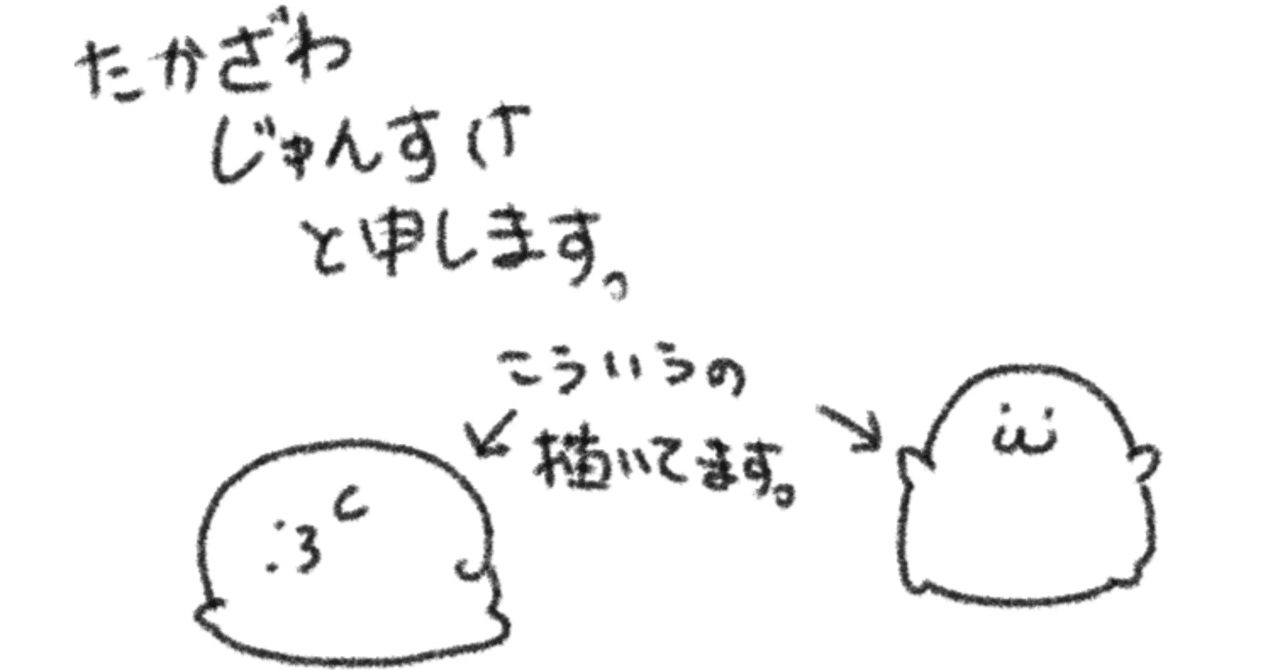 たかざわ
じゅんすけ
と申します。
こういうの
描いてます。